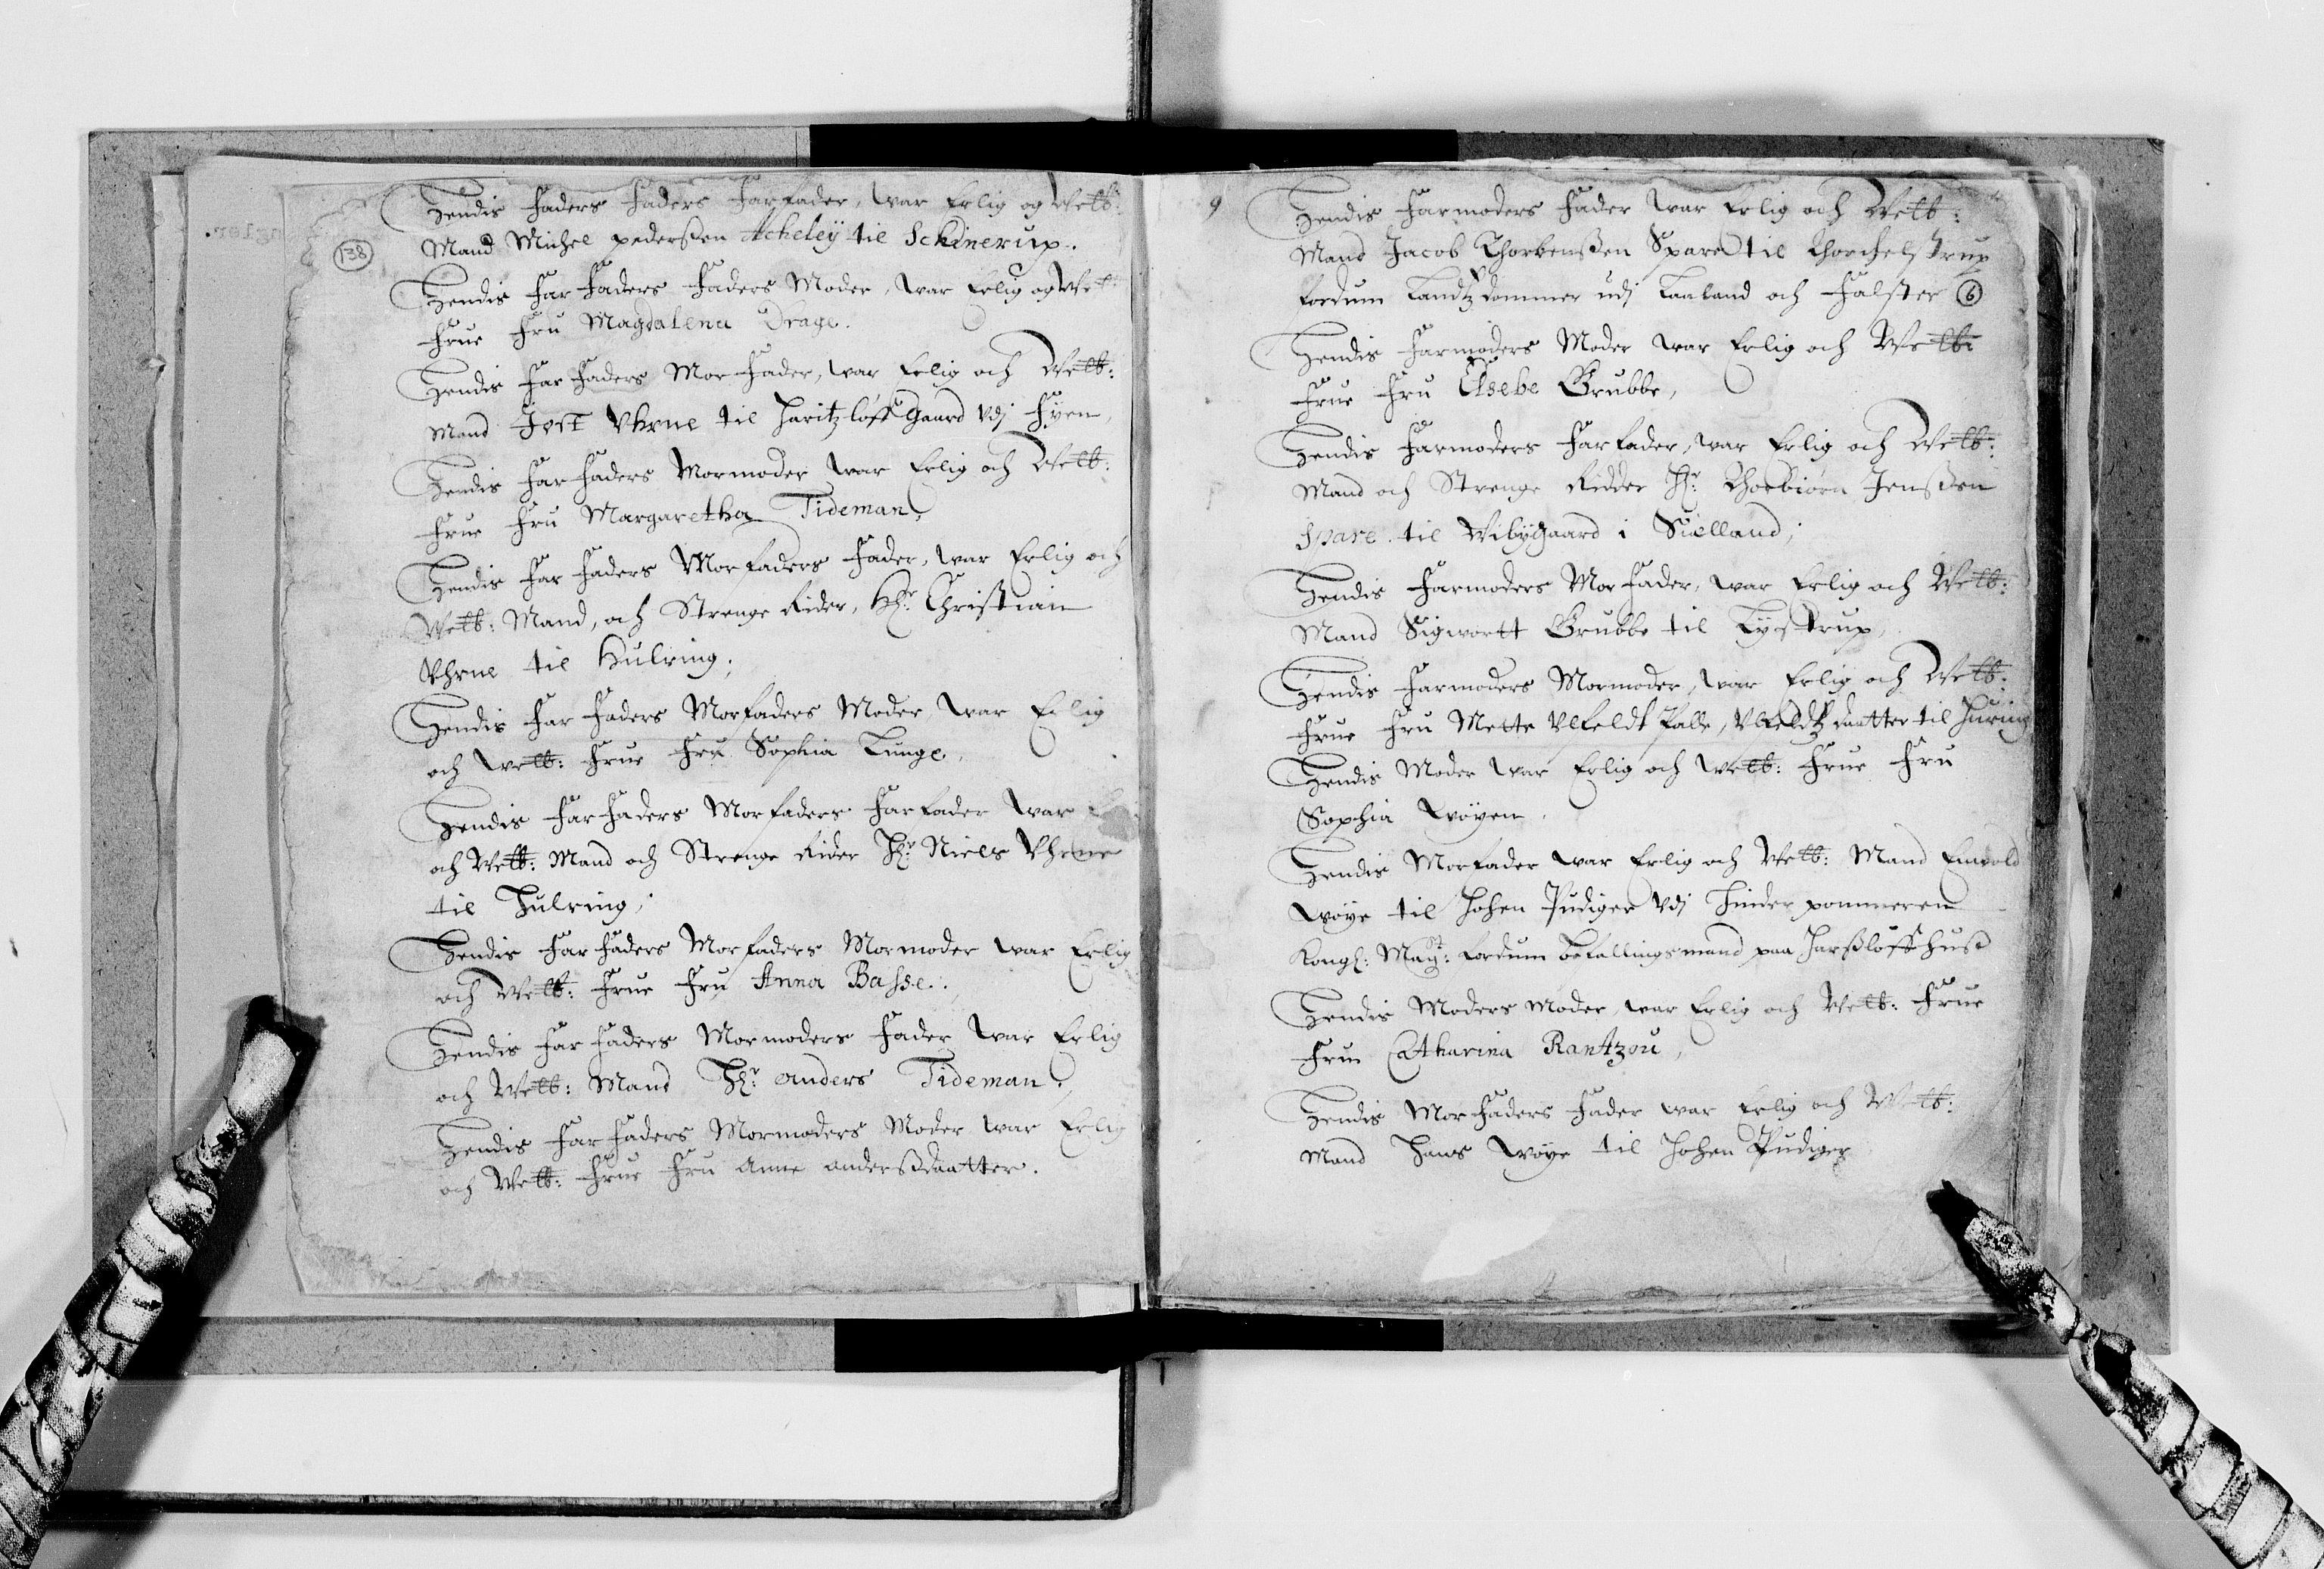 138
Hendis Faders Faders Farfader, war Erlig og Welb:
Mand Michel pederßen Acheleÿ til Schinerup.
Hendis Far Faders Faders Moder, war Erlig og Wel
Frue Fru Magdalena Drage.
Hendis Far Faders Mor Fader, war Erlig och Welb:
Mand Jost Vhrne til Haritzlöff Gaard vdj Fÿen,
Hendis Far Faders Mormoder war Erlig och Welb:
Frue Fru Margaretha Tideman,
Hendis Far Faders Morfaders Fader, war Erlig och
Welb: Mand, och Strenge Rider, Hr: Christian
Vhrne til Hulring;
Hendis Far Faders Morfaders Moder, war Erlig
och Welb: Frue Fru Sophia Lunge,
Hendis Far Faders Morfaders Farfader war
och Welb: Mand och Strenge Rider Hr: Niels Vhrne
til Hulring;
Hendis Far Faders Morfaders Mormoder war Erlig
och Welb: Frue Fru Anna Basse.
Hendis Far Faders Mormoders Fader war Erlig
och Welb: Mand Hr: Anders Tideman,
Hendis Far Faders Mormoders Moder war Erlig
och Welb: Frue Fru Anne Anderßdaatter.
9
Hendis Farmoders Fader war Erlig och Welb:
Mand Jacob Thorbenßen Spare til Thorchelstrup
fordum Landtzdommer udj Laaland och Falster
6
Hendis Farmoders Moder war Erlig och Welb:
Frue Fru Elsebe Grubbe,
Hendis Farmoders Farfader, war Erlig och Welb:
Mand och Strenge Ridder Hr: Thorbiörn Jenßen
Spare til Wibÿgaard i Siælland;
Hendis Farmoders Morfader, war Erlig och Welb:
Mand Sigwortt Grubbe til Lystrup,
Hendis Farmoders Mormoder, war Erlig och Welb:
Frue Fru Mette Vlfeldt Palle, Vlfeldtz daatter til Hüring
Hendis Moder war Erlig och Welb: Frue Fru
Sophia Woÿen,
Hendis Morfader war Erlig och Welb: Mand Ewold
Woÿe til Hohen Pudiger vdj Hinder pommeren
Kongl: Maÿst: fordum befallingsmand paa Harßlöff huß
Hendis Moders Moder, war Erlig och Welb: Frue
Fru Catharina Rantzou,
Hendis Morfaders Fader war Erlig och Welb:
Mand Hans Woÿe til Hohen Pudiger